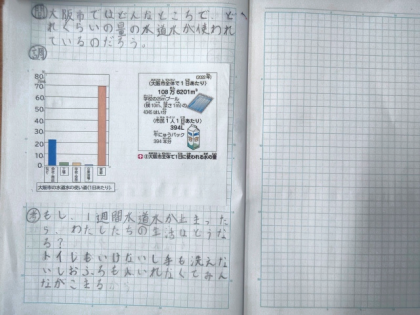 問 大阪市ではどんなところで、ど
れくらいの量の水道水が使われ
ているのだろう。
80
70
60
50
40
30
20
10
0
大阪市の水道水の使い道(1日あたり)
(大阪市全体で1日あたり)
108万6201m³
(市民1人1日あたり)
394L
牛にゅうパック
394本分
大阪市全体で1日に使われる水の量
考 もし、1週間水道水が止まった
ら、わたしたちの生活はどうな
る?
トイレもいけないし手も洗えな
いしおふろもはいれなくてみん
ながこまる